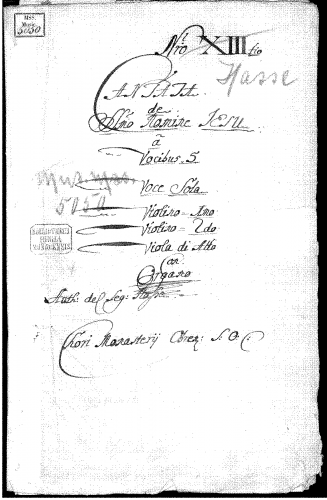 MSS.
Music.
5050
Nro XIII tio
Hasse
CANTATA
de
SSmo Nomine IESU
à
Vocibus 5
Mus. ms.
Voce Sola
5050
Violino Imo
Violino 2do
REGIA
MONACENSIS
Viola di Alto
Con
Organo
Auth: del Sig: Hasse
Chori Monasterij